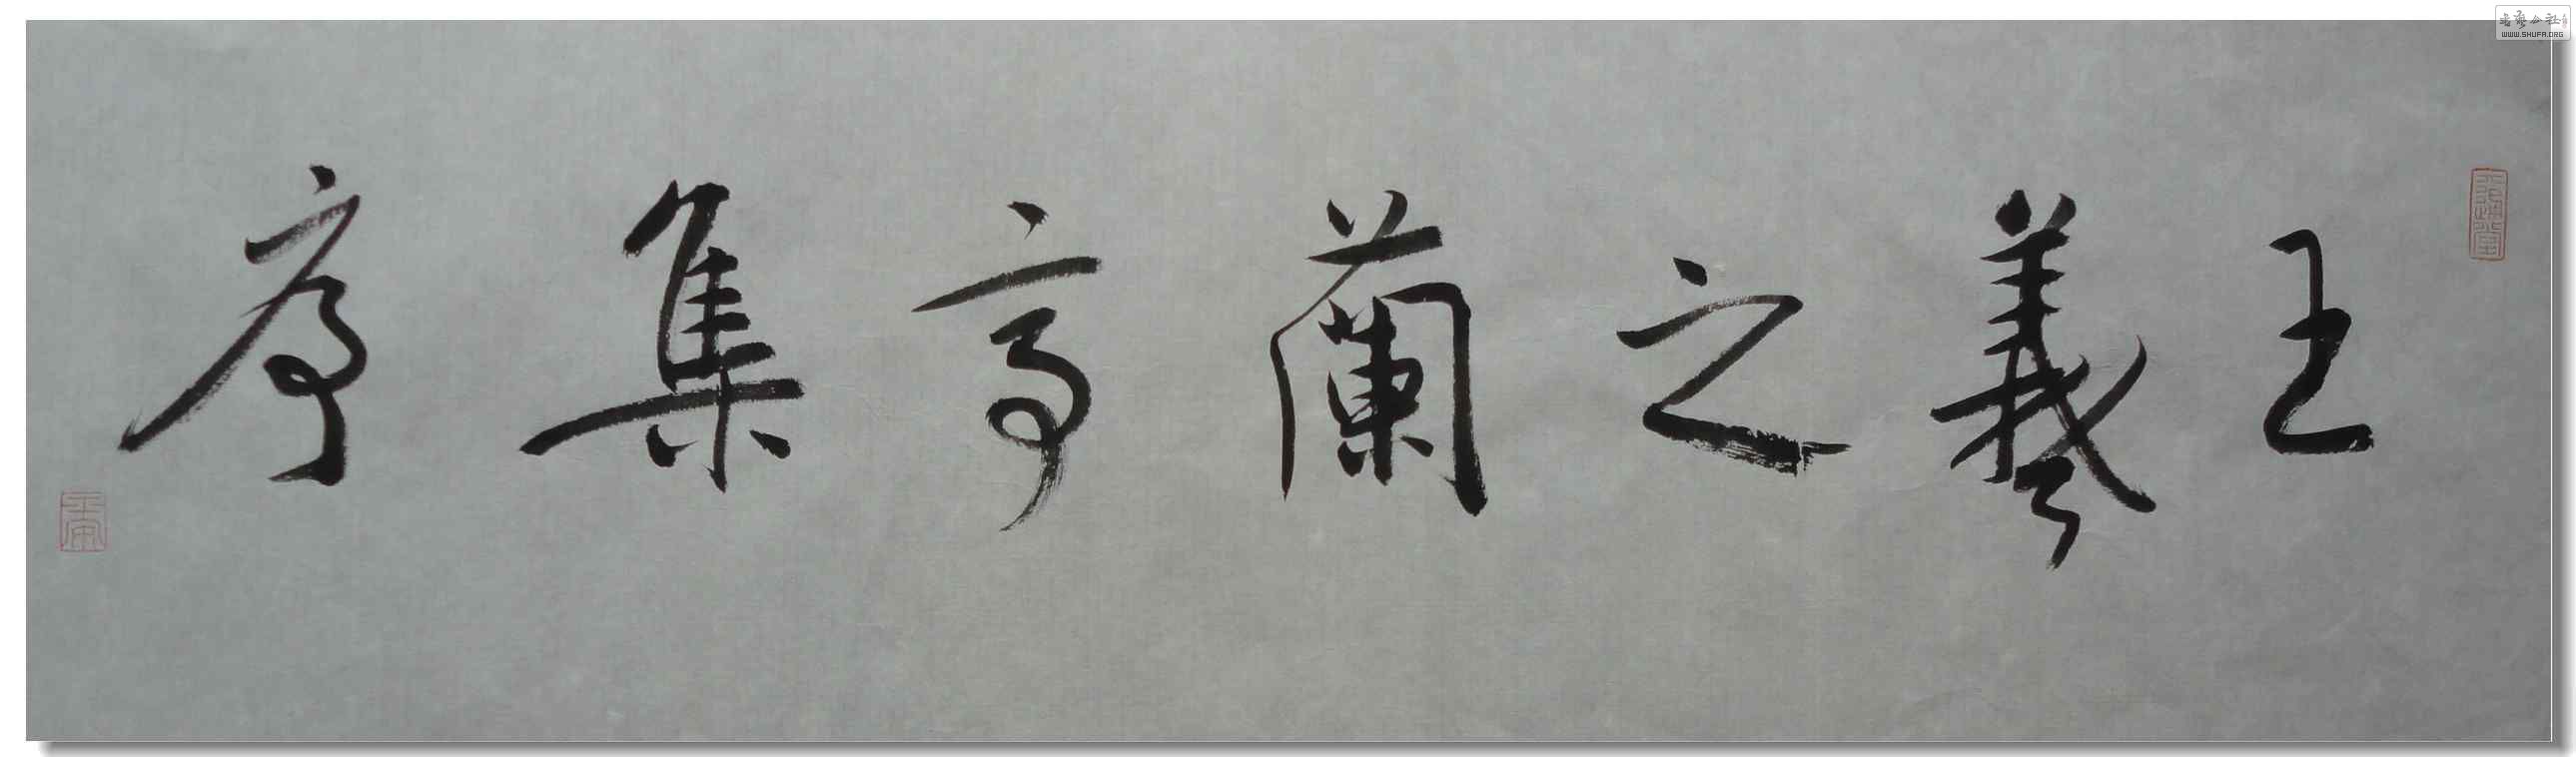 王羲之蘭亭集序
書藝公社
WWW.SHUFA.ORG